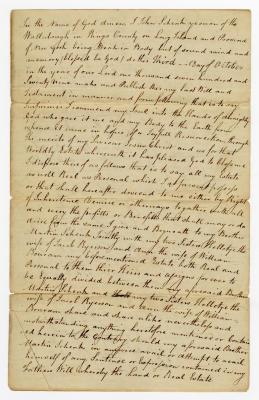 In the Name of God Amen I John Schenk yeoman of the
Wallabaugh in Kings County on Long Island and Province
of New York being Weak in Body but of sound mind and
memory (blessed be God) do this Third Day of October
in the year of our Lord one thousand seven hundred and
Twenty nine make and Publish this my last Will and
Testament in manner and form following that is to say
Imprimis I commend my Soul into the Hands of Almighty
God who gave it me and my Body to the Earth from
whence it came in hopes of a Joyfull Resurrection through
the merits of my Saviour Jesus Christ and as for that
Worldly Estate wherewith it has pleased God to bless me
I dispose thereof as follows that is to say all my Estate
as well Real as Personal which I at present possess
or that shall hereafter descend to me either by Right
of Inheritance Demise or otherways together with all
and every the profitts or Benefitts that shall may or do
arise from the same I give and Bequeath to my Brother
Martin Schenk Jointly with my two Sisters
wife of Jacob Ryerson and the wife of William
Bourum my beforementioned Estate both Real and
Personal to them their Heirs and assigns for ever to
be Equally divided between them my aforesaid Brother
Martin Schenk and my two Sisters
wife of Jacob Ryerson and the wife of William
Bourum share and share alike nevertheless and
notwithstanding anything heretofore mentioned or contain
ed herein to the Contrary should my aforesaid Brother
Martin Schenk in anywise avail or attempt to avail
himself of any Sentence or Expression contained in my
Fathers Will whereby the Land or Real Estate